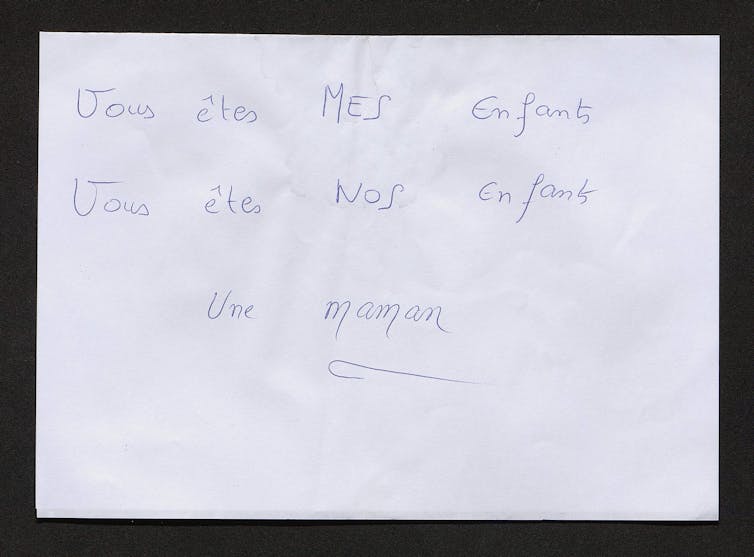 Vous êtes MES Enfants
Vous êtes NOS Enfants
Une maman